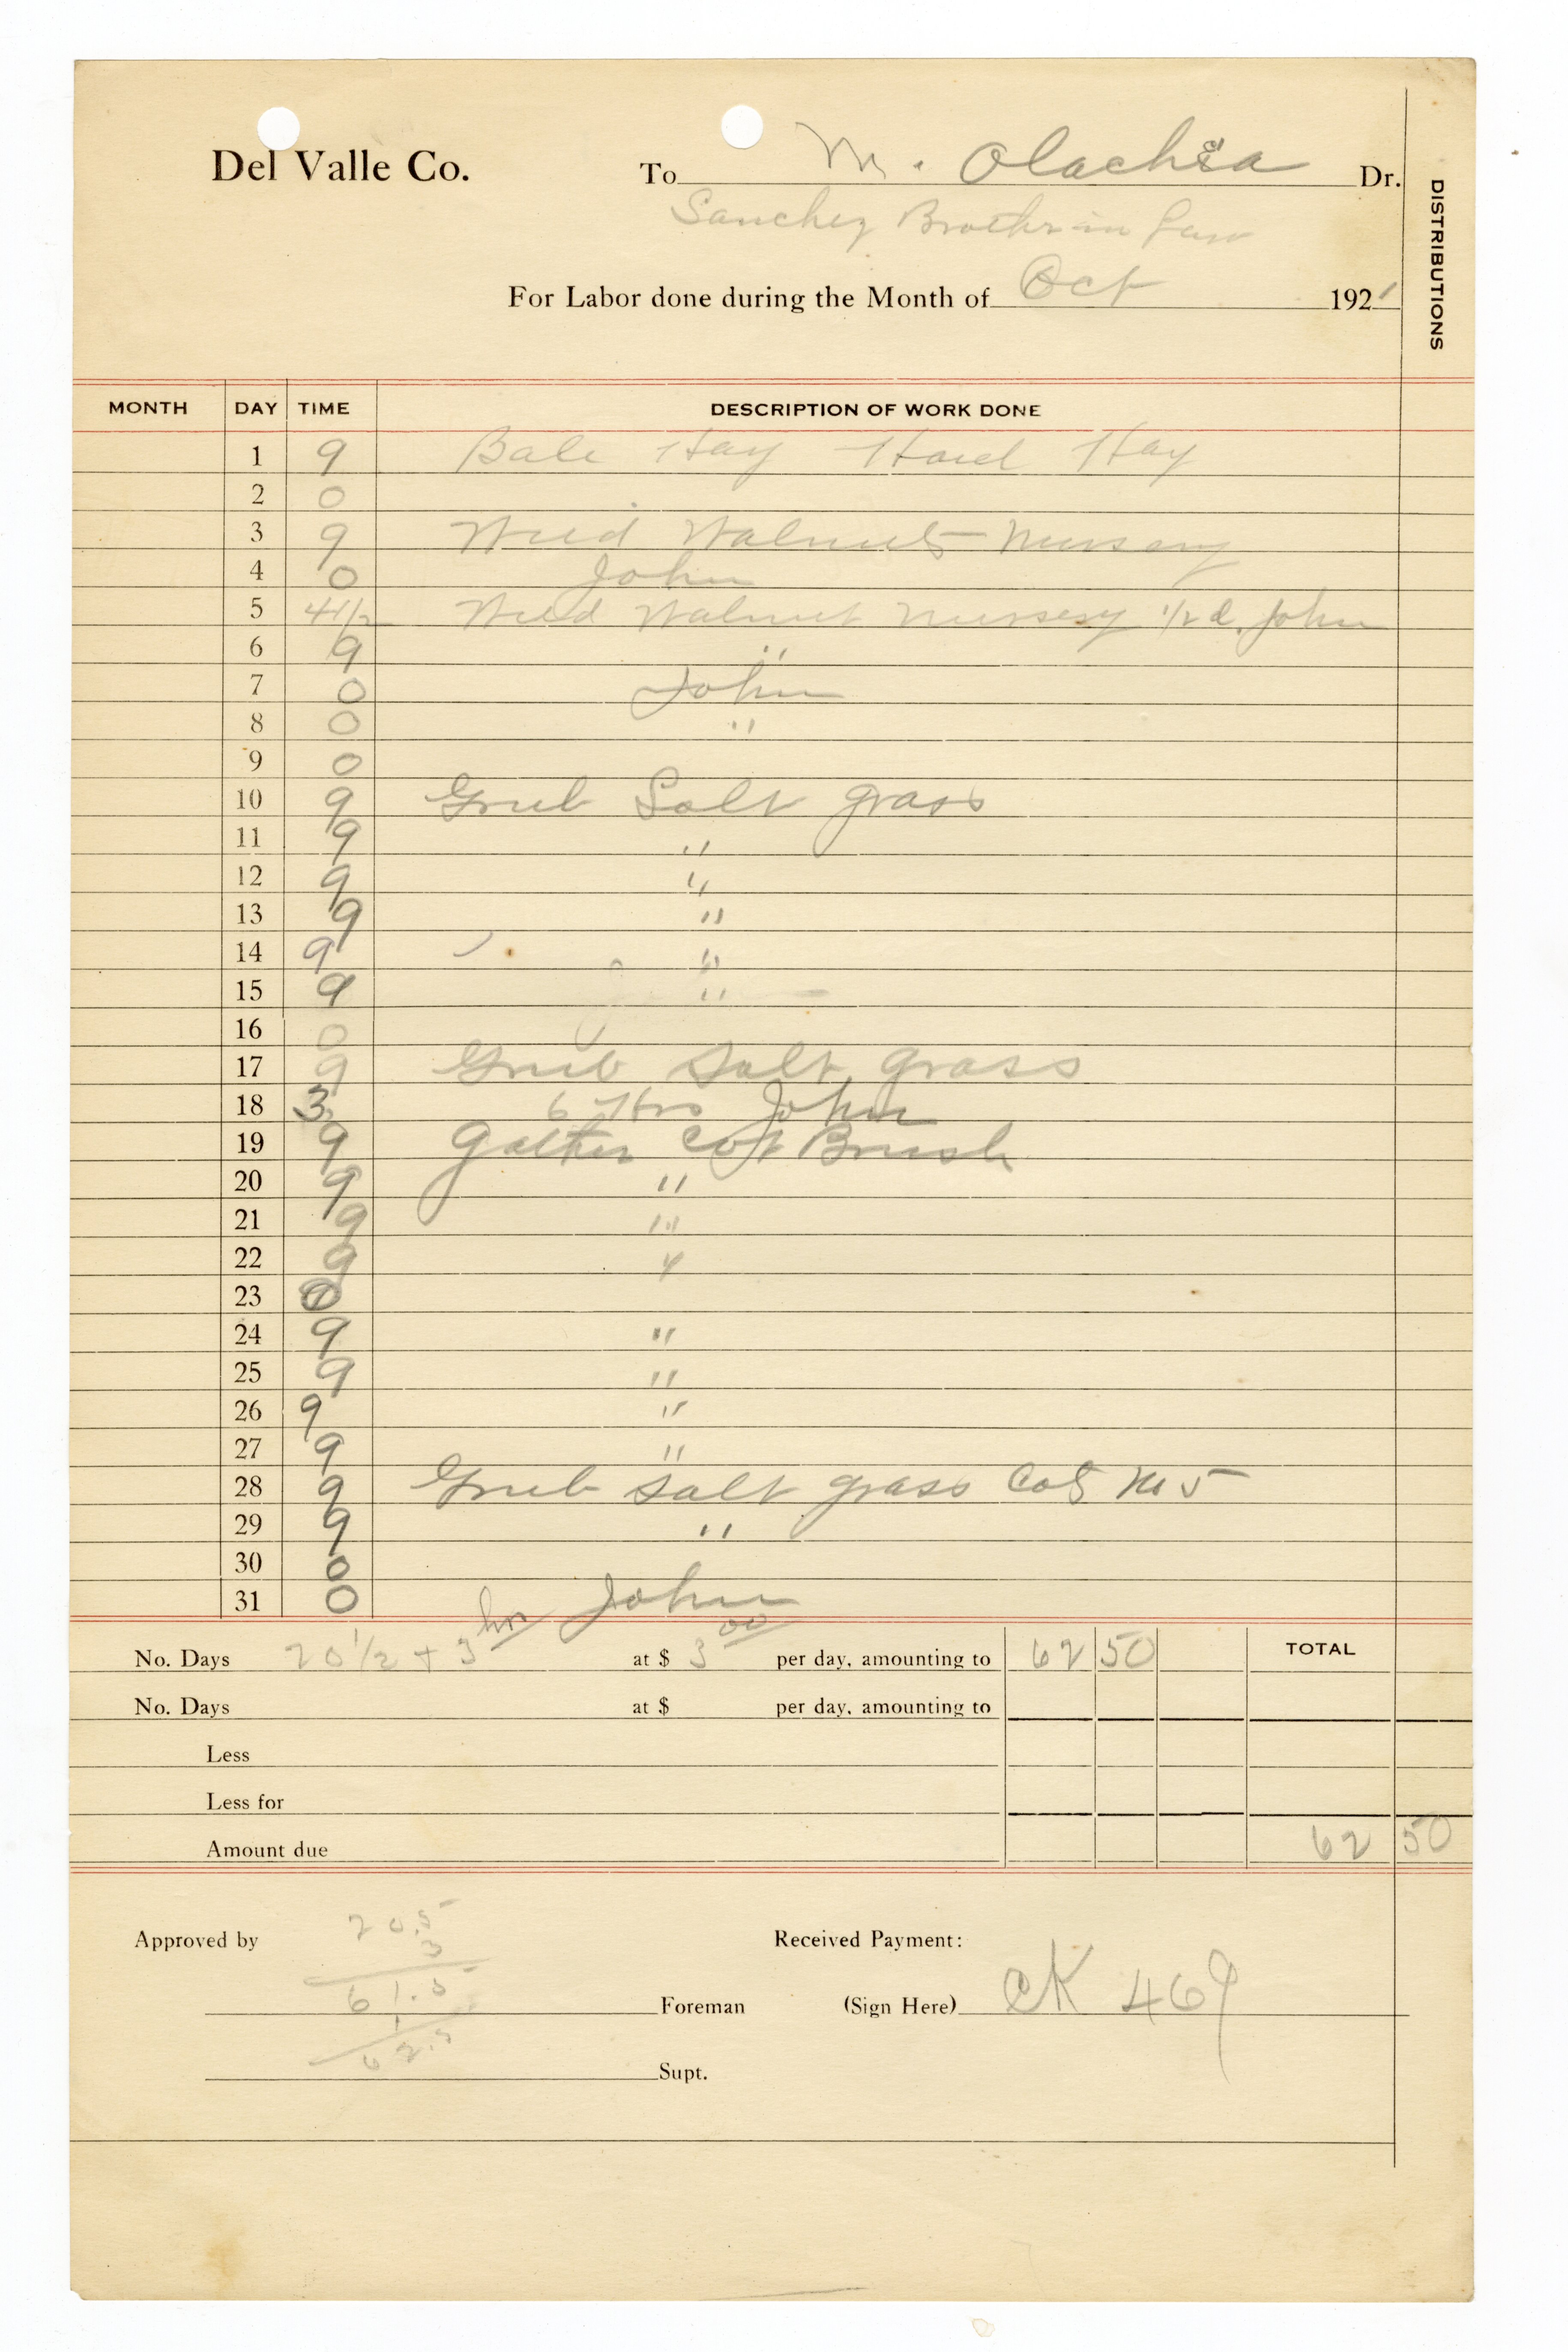 Del Valle Co. To M. Olachea Dr.
Sanchez Brother in Law
For Labor done during the Month of Oct 1921
DISTRIBUTIONS
MONTH DAY TIME DESCRIPTION OF WORK DONE
1 9 Bale Hay Haul Hay
2 0
3 9 Weed Walnuts Nursery
4 0 John
5 4 1/2 Weed Walnut Nursery 1/2 d. John
6 9 "
7 0 John
8 0 "
9 0
10 9 Grub Salt grass
11 9 "
12 9 "
13 9 "
14 9 "
15 9 "
16 0
17 9 Grub Salt grass
18 3 6 Hrs John
19 9 Gather Cot Brush
20 9 "
21 9 "
22 9 "
23 0
24 9 "
25 9 "
26 9 "
27 9 "
28 9 Grub Salt grass Cots No 5
29 9 "
30 0
31 0 John
No. Days 20 1/2 + 3 hrs at $ 3 00 per day, amounting to 62 50 TOTAL
No. Days at $ per day, amounting to
Less
Less for
Amount due 62 50
20.5
Approved by 3 Received Payment:
61.5
Foreman (Sign Here) CK 469
1
62.5
Supt.